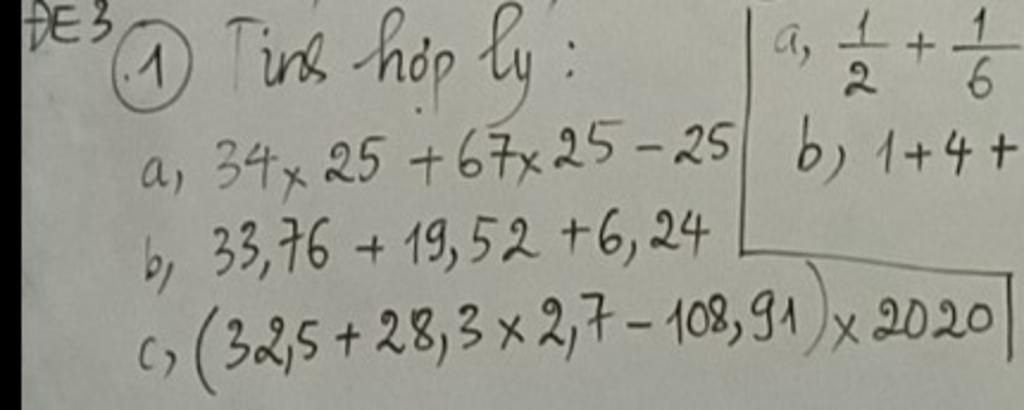 ĐE 3
1 Tính hợp lý :
a, 34 x 25 + 67 x 25 - 25
b, 33,76 + 19,52 + 6,24
c, (32,5 + 28,3 x 2,7 - 108,91) x 2020
a, 1/2 + 1/6
b) 1 + 4 +